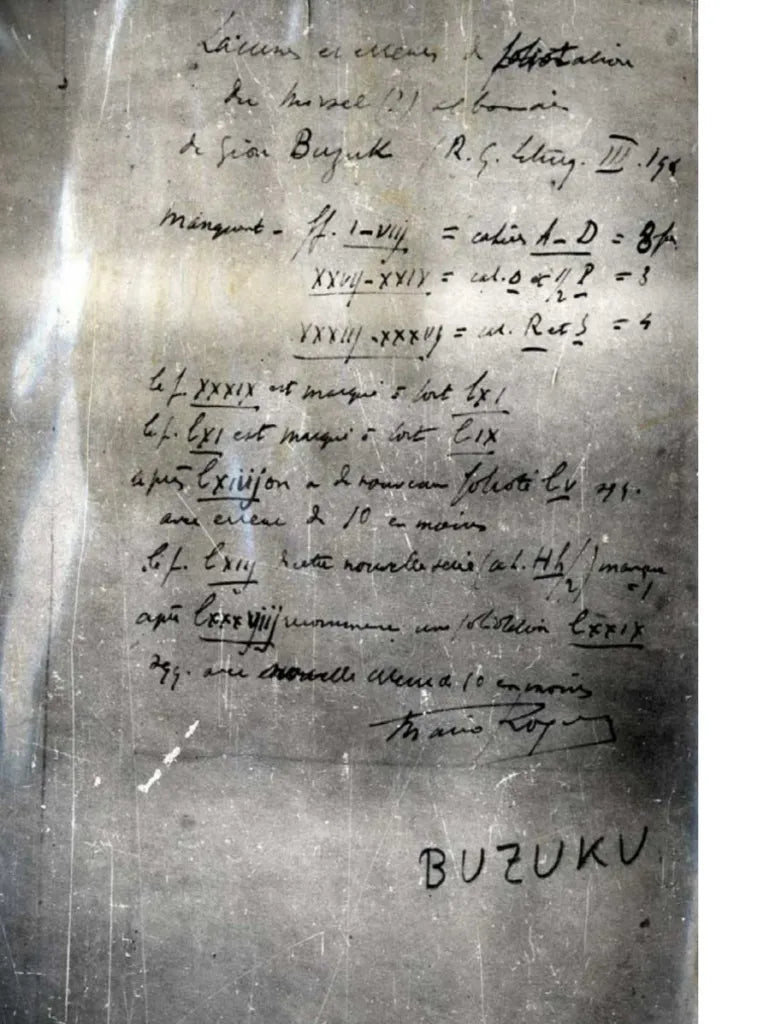 Lacunes et erreurs de foliotation
du missel (?) albanais
de Gion Buzuk (R. G. Liturg. III.
Manquent - ff. I-viij = cahiers A-D = 8
XXvij-XXIX = cah. O et 1/2 P = 3
XXXIIJ-XXXVJ = cah. R et S = 4
le f. XXXIX est marqué à tort lXI
le f. lXI est marqué à tort lIX
après lxiiij on a de nouveau folioté lv sqq.
avec erreur de 10 en moins
le f. lxiij de cette nouvelle série (cah. Hh/2) manque = 1
après lxxxviij recommence une foliotation lxxix
sqq. avec nouvelle erreur de 10 en moins
Mario
BUZUKU